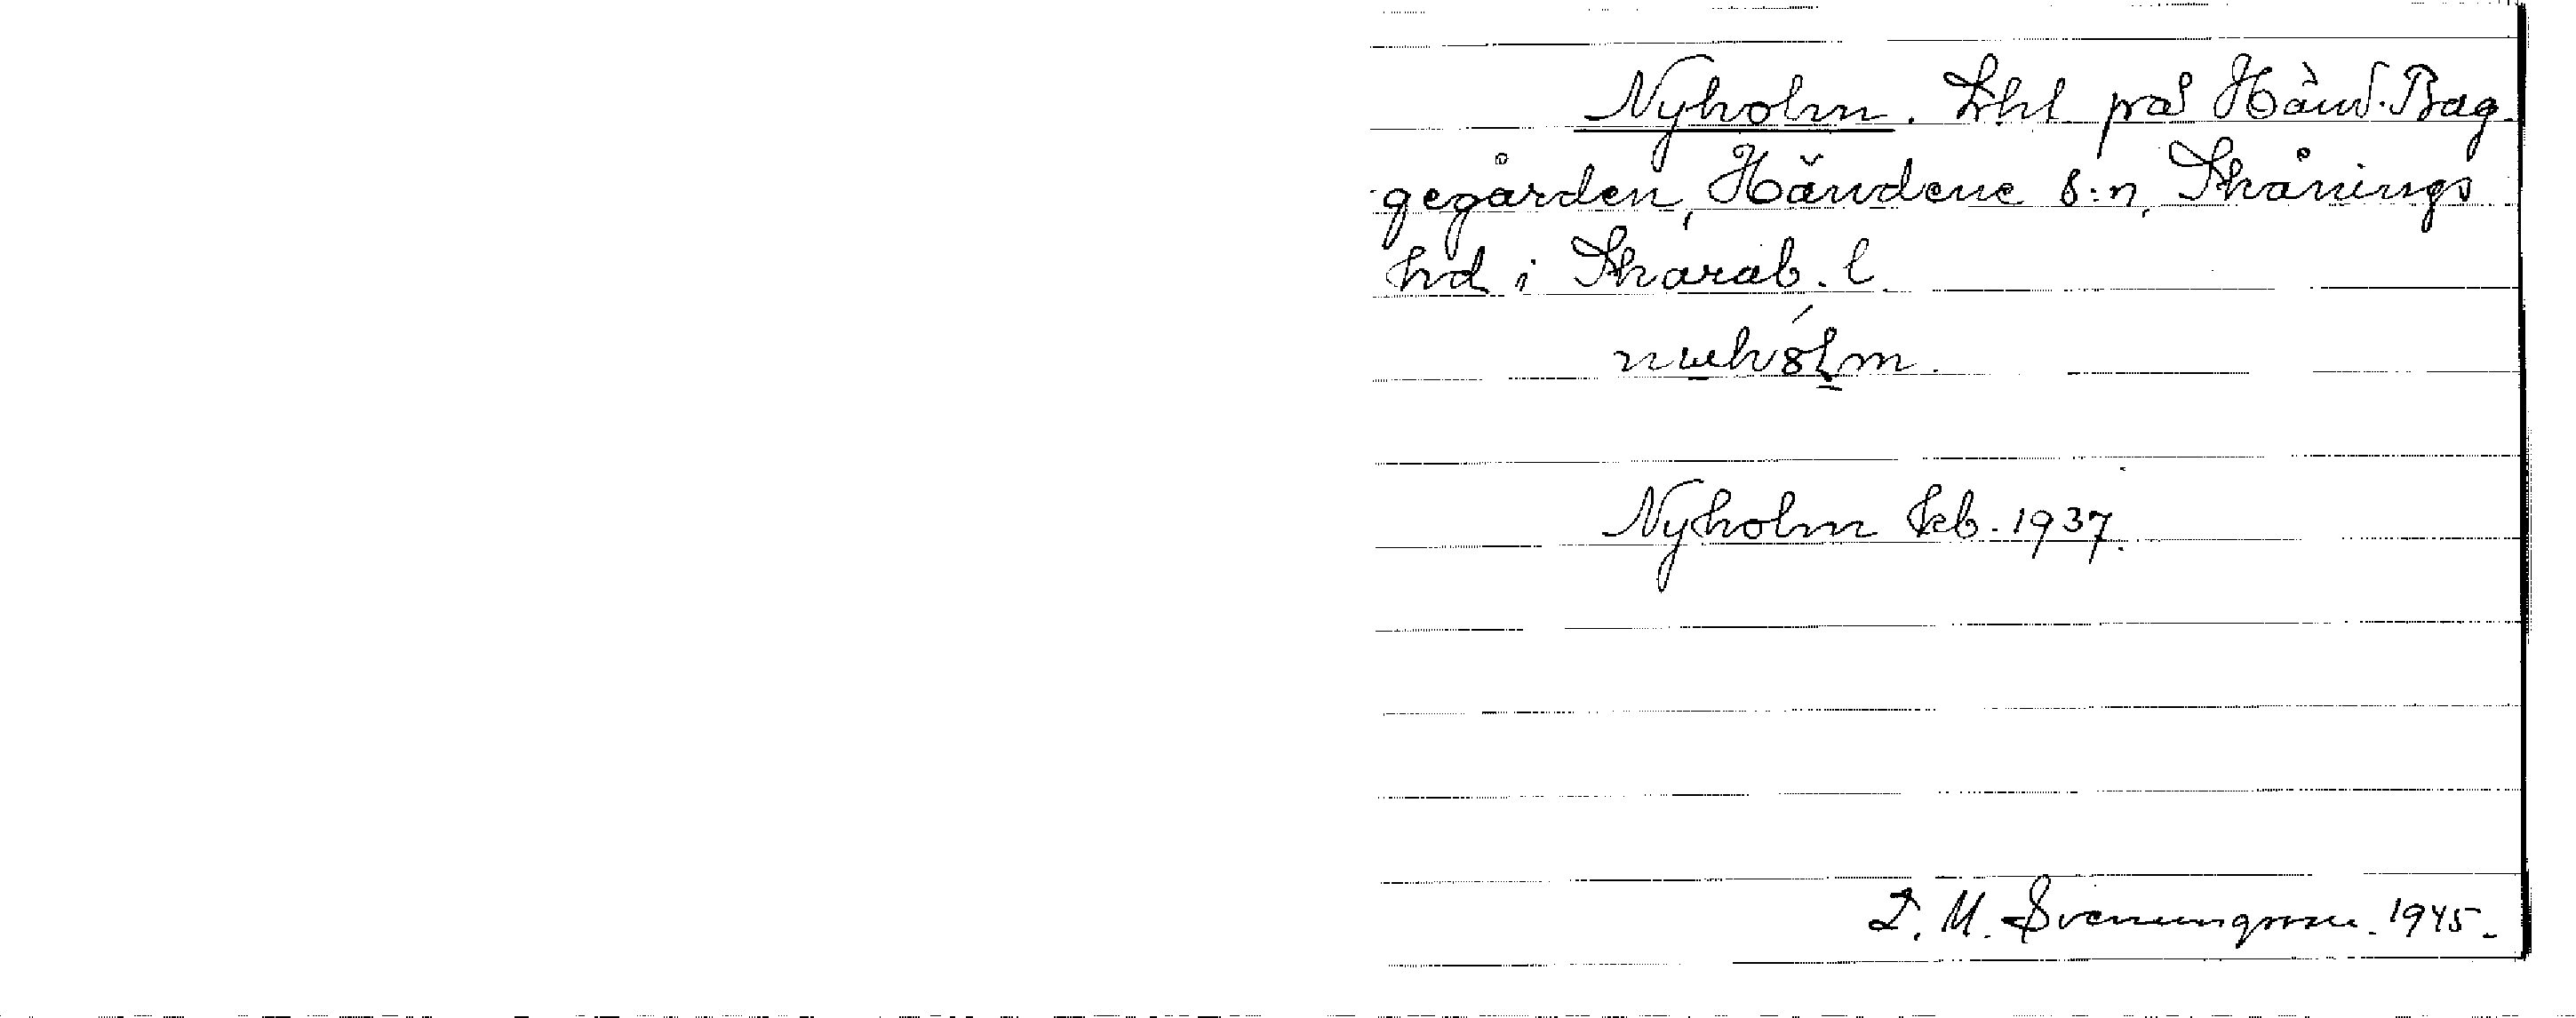 Nyholm. Lht på Händ. Bag-
gegården, Händene s:n, Skånings
hd i Skarab. l.
Nyholm kb. 1937.
D. M. Svenungsson. 1945.